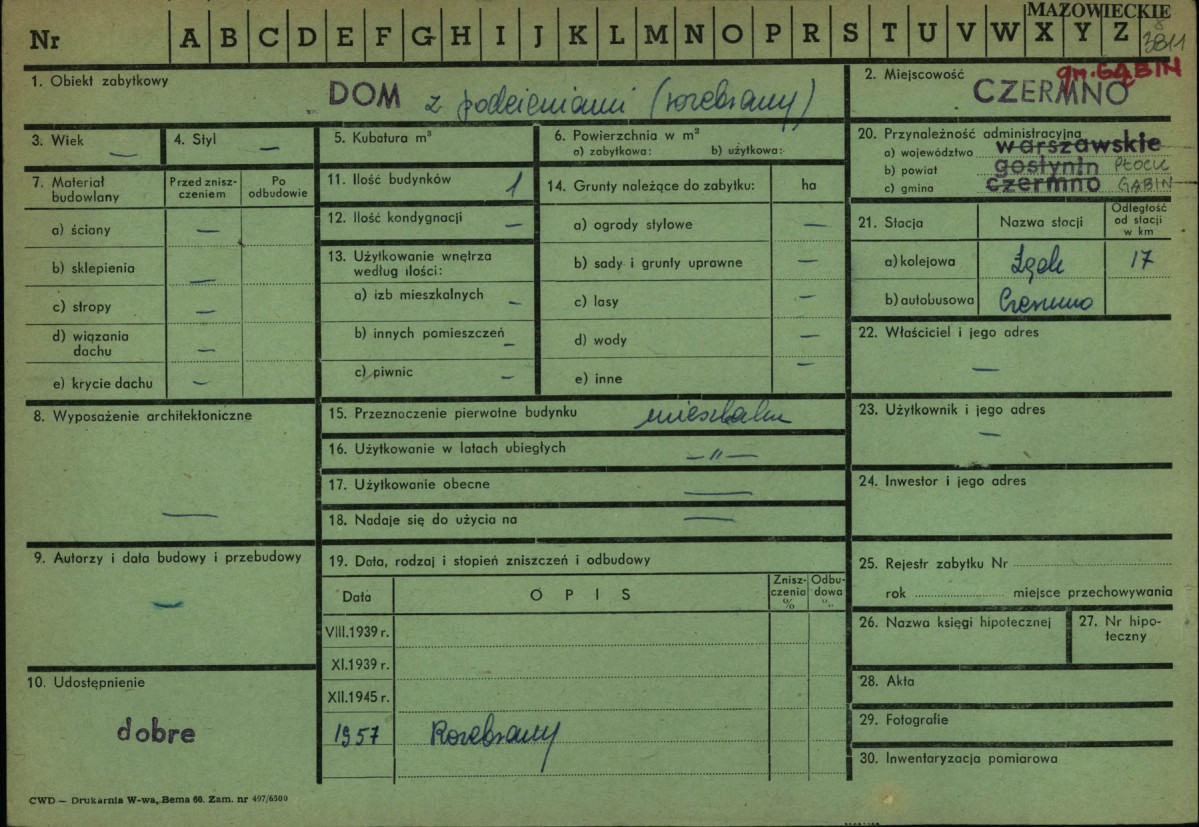 MAZOWIECKIE
Nr A B C D E F G H I J K L M N O P R S T U V W X Y Z
8
3811
1. Obiekt zabytkowy
DOM z podcieniami (rozebrany)
2. Miejscowość
gm. GĄBIN
CZERMNO
3. Wiek —
4. Styl —
5. Kubatura m³
6. Powierzchnia w m²
a) zabytkowa: b) użytkowa:
20. Przynależność administracyjna
a) województwo warszawskie
b) powiat gostynin PŁOCK
c) gmina czermno GĄBIN
7. Materiał budowlany
Przed zniszczeniem
Po odbudowie
a) ściany —
b) sklepienia —
c) stropy —
d) wiązania dachu —
e) krycie dachu —
11. Ilość budynków 1
12. Ilość kondygnacji —
13. Użytkowanie wnętrza
według ilości:
a) izb mieszkalnych —
b) innych pomieszczeń —
c) piwnic —
14. Grunty należące do zabytku: ha
a) ogrody stylowe —
b) sady i grunty uprawne —
c) lasy —
d) wody —
e) inne —
21. Stacja
Nazwa stacji
Odległość
od stacji
w km
a) kolejowa 17
b) autobusowa Czermno
22. Właściciel i jego adres
—
8. Wyposażenie architektoniczne
—
15. Przeznaczenie pierwotne budynku mieszkalne
16. Użytkowanie w latach ubiegłych —"—
17. Użytkowanie obecne —
18. Nadaje się do użycia na —
23. Użytkownik i jego adres
—
24. Inwestor i jego adres
9. Autorzy i data budowy i przebudowy
—
19. Data, rodzaj i stopień zniszczeń i odbudowy
Data
OPIS
Zniszczenia %
Odbudowa „
VIII.1939 r.
XI.1939 r.
XII.1945 r.
1957 Rozebrany
25. Rejestr zabytku Nr
rok miejsce przechowywania
26. Nazwa księgi hipotecznej
27. Nr hipoteczny
10. Udostępnienie
dobre
28. Akta
29. Fotografie
30. Inwentaryzacja pomiarowa
CWD — Drukarnia W-wa, Bema 60. Zam. nr 497/6500